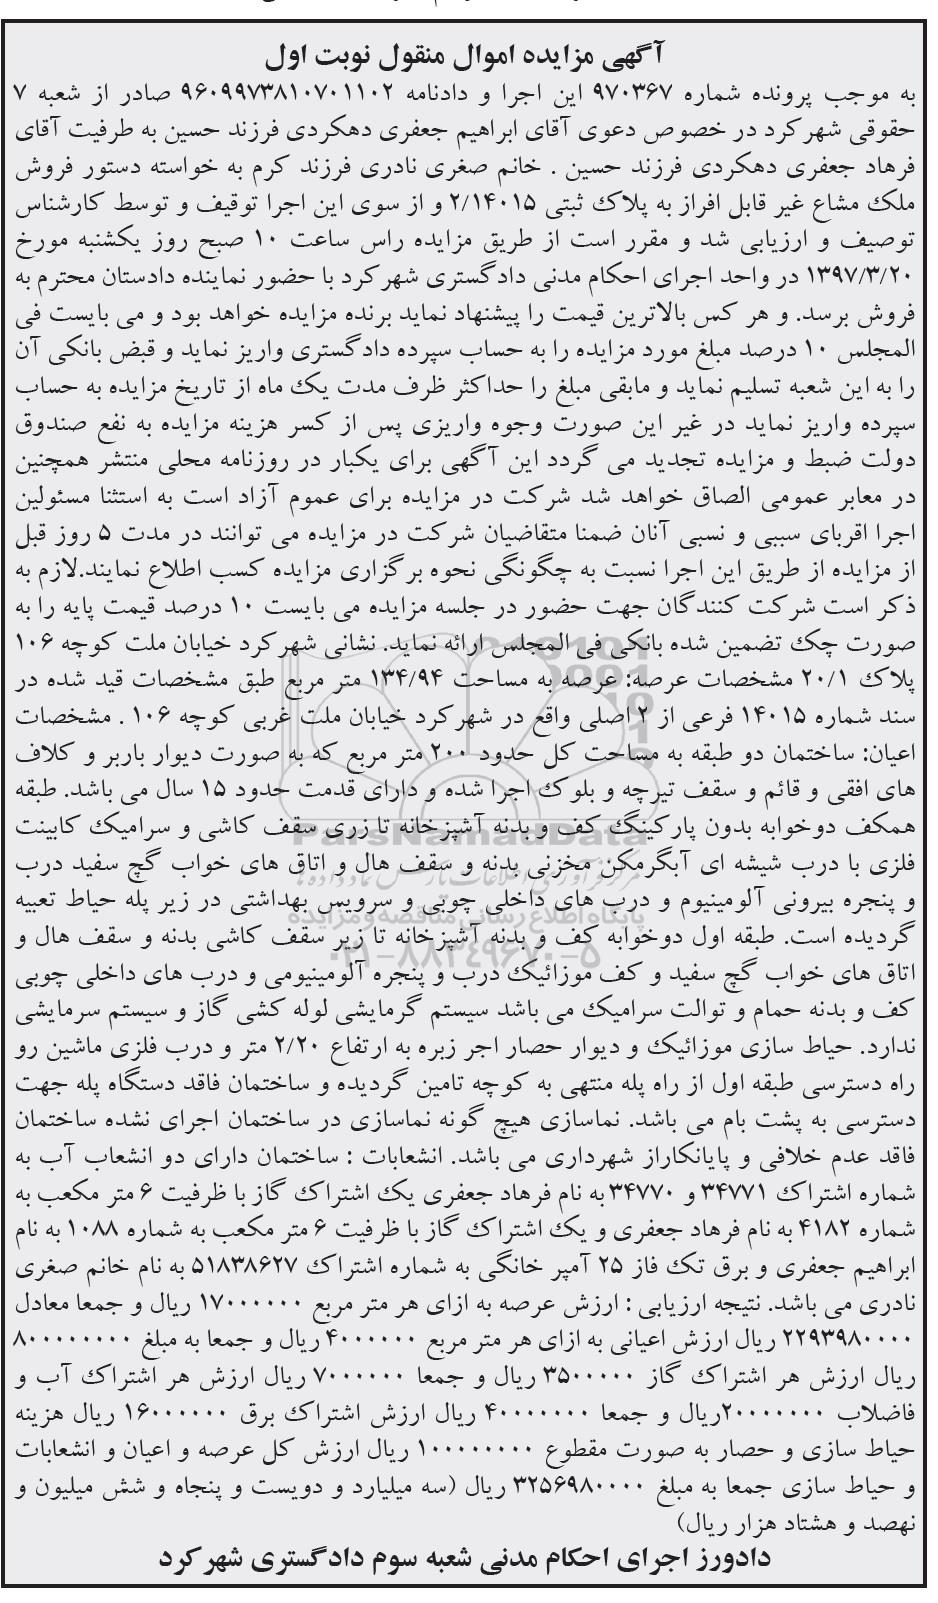 آگهی مزایده اموال منقول نوبت اول
به موجب پرونده شماره ۹۷۰۳۶۷ این اجرا و دادنامه ۹۶۰۹۹۷۳۸۱۰۷۰۱۱۰۲ صادر از شعبه ۷
حقوقی شهرکرد در خصوص دعوی آقای ابراهیم جعفری دهکردی فرزند حسین به طرفیت آقای
فرهاد جعفری دهکردی فرزند حسین . خانم صغری نادری فرزند کرم به خواسته دستور فروش
ملک مشاع غیر قابل افراز به پلاک ثبتی ۲/۱۴۰۱۵ و از سوی این اجرا توقیف و توسط کارشناس
توصیف و ارزیابی شد و مقرر است از طریق مزایده راس ساعت ۱۰ صبح روز یکشنبه مورخ
۱۳۹۷/۳/۲۰ در واحد اجرای احکام مدنی دادگستری شهرکرد با حضور نماینده دادستان محترم به
فروش برسد. و هر کس بالاترین قیمت را پیشنهاد نماید برنده مزایده خواهد بود و می بایست فی
المجلس ۱۰ درصد مبلغ مورد مزایده را به حساب سپرده دادگستری واریز نماید و قبض بانکی آن
را به این شعبه تسلیم نماید و مابقی مبلغ را حداکثر ظرف مدت یک ماه از تاریخ مزایده به حساب
سپرده واریز نماید در غیر این صورت وجوه واریزی پس از کسر هزینه مزایده به نفع صندوق
دولت ضبط و مزایده تجدید می گردد این آگهی برای یکبار در روزنامه محلی منتشر همچنین
در معابر عمومی الصاق خواهد شد شرکت در مزایده برای عموم آزاد است به استثنا مسئولین
اجرا اقربای سببی و نسبی آنان ضمنا متقاضیان شرکت در مزایده می توانند در مدت ۵ روز قبل
از مزایده از طریق این اجرا نسبت به چگونگی نحوه برگزاری مزایده کسب اطلاع نمایند.لازم به
ذکر است شرکت کنندگان جهت حضور در جلسه مزایده می بایست ۱۰ درصد قیمت پایه را به
صورت چک تضمین شده بانکی فی المجلس ارائه نماید. نشانی شهرکرد خیابان ملت کوچه ۱۰۶
پلاک ۲۰/۱ مشخصات عرصه: عرصه به مساحت ۱۳۴/۹۴ متر مربع طبق مشخصات قید شده در
سند شماره ۱۴۰۱۵ فرعی از ۲ اصلی واقع در شهرکرد خیابان ملت غربی کوچه ۱۰۶ . مشخصات
اعیان: ساختمان دو طبقه به مساحت کل حدود ۲۰۰ متر مربع که به صورت دیوار باربر و کلاف
های افقی و قائم و سقف تیرچه و بلوک اجرا شده و دارای قدمت حدود ۱۵ سال می باشد. طبقه
همکف دوخوابه بدون پارکینگ کف و بدنه آشپزخانه تا زری سقف کاشی و سرامیک کابینت
فلزی با درب شیشه ای آبگرمکن مخزنی بدنه و سقف هال و اتاق های خواب گچ سفید درب
و پنجره بیرونی آلومینیوم و درب های داخلی چوبی و سرویس بهداشتی در زیر پله حیاط تعبیه
گردیده است. طبقه اول دوخوابه کف و بدنه آشپزخانه تا زیر سقف کاشی بدنه و سقف هال و
اتاق های خواب گچ سفید و کف موزائیک درب و پنجره آلومینیومی و درب های داخلی چوبی
کف و بدنه حمام و توالت سرامیک می باشد سیستم گرمایشی لوله کشی گاز و سیستم سرمایشی
ندارد. حیاط سازی موزائیک و دیوار حصار اجر زبره به ارتفاع ۲/۲۰ متر و درب فلزی ماشین رو
راه دسترسی طبقه اول از راه پله منتهی به کوچه تامین گردیده و ساختمان فاقد دستگاه پله جهت
دسترسی به پشت بام می باشد. نماسازی هیچ گونه نماسازی در ساختمان اجرای نشده ساختمان
فاقد عدم خلافی و پایانکاراز شهرداری می باشد. انشعابات : ساختمان دارای دو انشعاب آب به
شماره اشتراک ۳۴۷۷۱ و ۳۴۷۷۰ به نام فرهاد جعفری یک اشتراک گاز با ظرفیت ۶ متر مکعب به
شماره ۴۱۸۲ به نام فرهاد جعفری و یک اشتراک گاز با ظرفیت ۶ متر مکعب به شماره ۱۰۸۸ به نام
ابراهیم جعفری و برق تک فاز ۲۵ آمپر خانگی به شماره اشتراک ۵۱۸۳۸۶۲۷ به نام خانم صغری
نادری می باشد. نتیجه ارزیابی : ارزش عرصه به ازای هر متر مربع ۱۷۰۰۰۰۰۰ ریال و جمعا معادل
۲۲۹۳۹۸۰۰۰۰ ریال ارزش اعیانی به ازای هر متر مربع ۴۰۰۰۰۰۰ ریال و جمعا به مبلغ ۸۰۰۰۰۰۰۰۰
ریال ارزش هر اشتراک گاز ۳۵۰۰۰۰۰ ریال و جمعا ۷۰۰۰۰۰۰ ریال ارزش هر اشتراک آب و
فاضلاب ۲۰۰۰۰۰۰۰ریال و جمعا ۴۰۰۰۰۰۰۰ ریال ارزش اشتراک برق ۱۶۰۰۰۰۰۰ ریال هزینه
حیاط سازی و حصار به صورت مقطوع ۱۰۰۰۰۰۰۰۰ ریال ارزش کل عرصه و اعیان و انشعابات
و حیاط سازی جمعا به مبلغ ۳۲۵۶۹۸۰۰۰۰ ریال (سه میلیارد و دویست و پنجاه و شش میلیون و
نهصد و هشتاد هزار ریال)
دادورز اجرای احکام مدنی شعبه سوم دادگستری شهرکرد
ParsNamadData
مرکز فرآوری اطلاعات پارس نماد داده ها
پایگاه اطلاع رسانی مناقصه و مزایده
۰۲۱-۸۸۳۴۹۶۷۰-۵